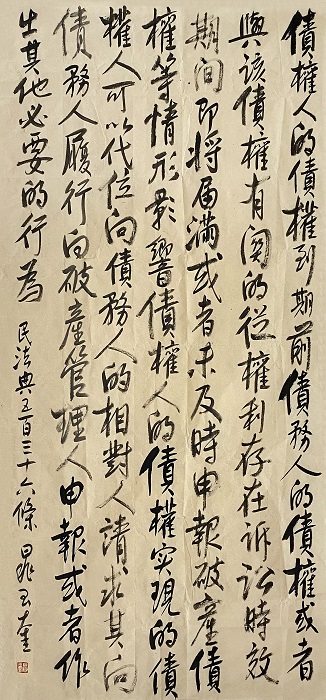 債權人的債權到期前債務人的債權或者
與該債權有関的從權利存在訴訟時效
期间即将届滿或者未及時申報破產債
權等情形影響債權人的債權实現的債
權人可以代位向債務人的相對人請求其向
債務人履行向破產管理人申報或者作
出其他必要的行為
民法典五百三十六條 晁玉奎